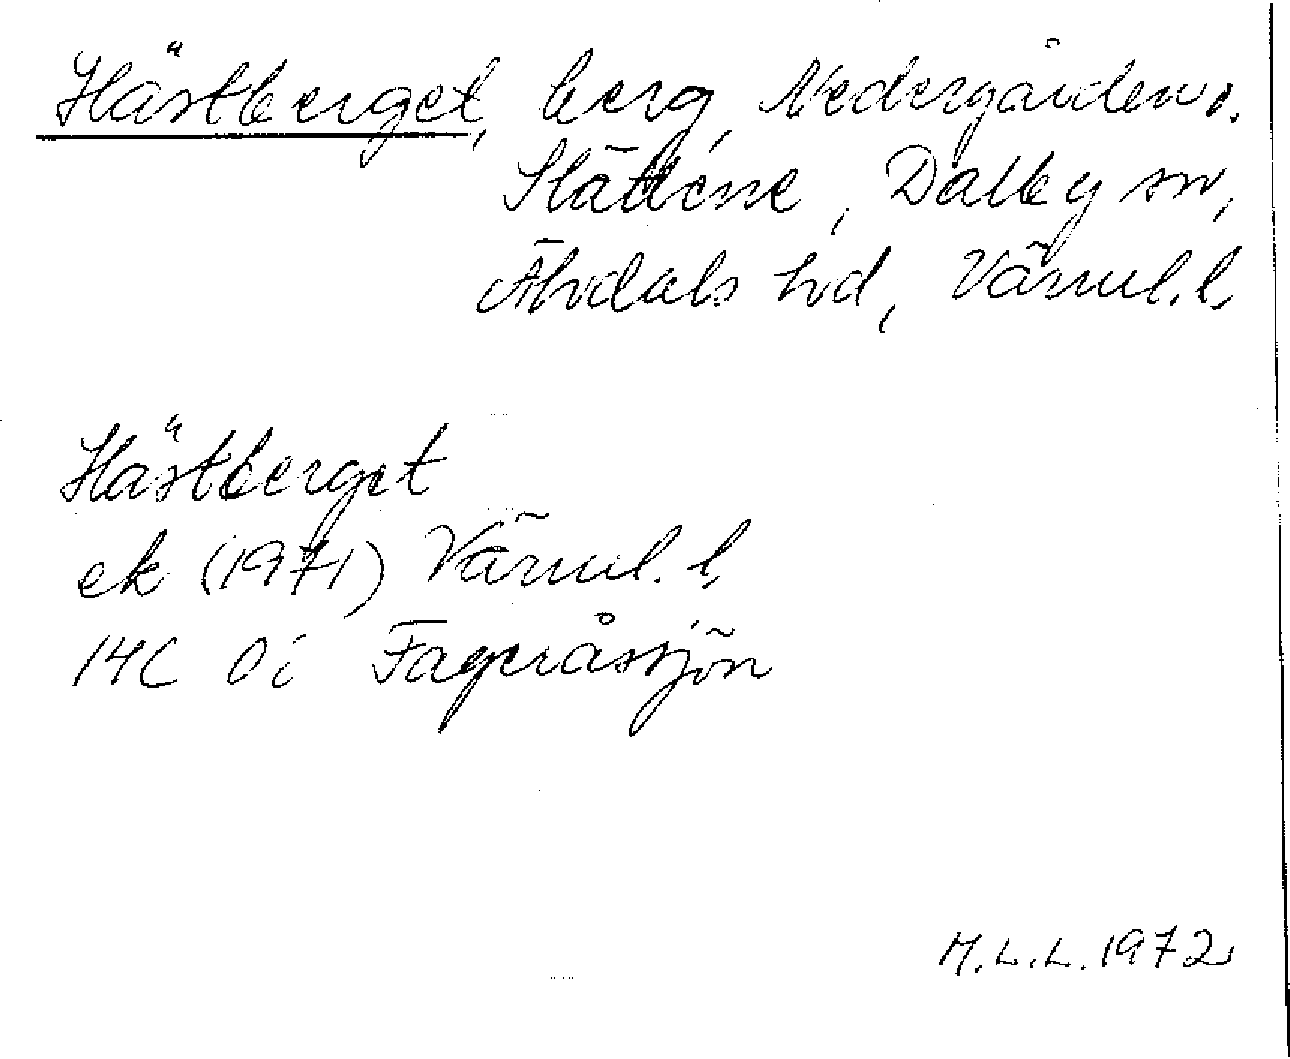 Hästberget, berg, Nedergården o.
Slättene, Dalby sn,
Älvdals hd, Värml. l.
Hästberget
ek (1971) Värml. l.
14C 0i Fageråssjön
M.L.L. 1972